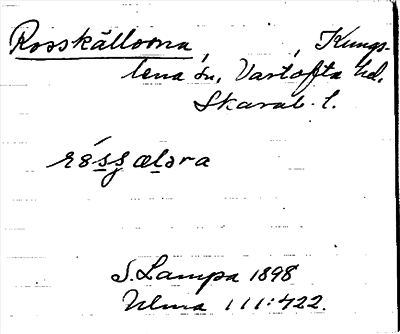 Rosskällorna, Kungs-
lena sn, Vartofta hd.
Skarab. l.
S. Lampa 1898
Ulma 111:422.